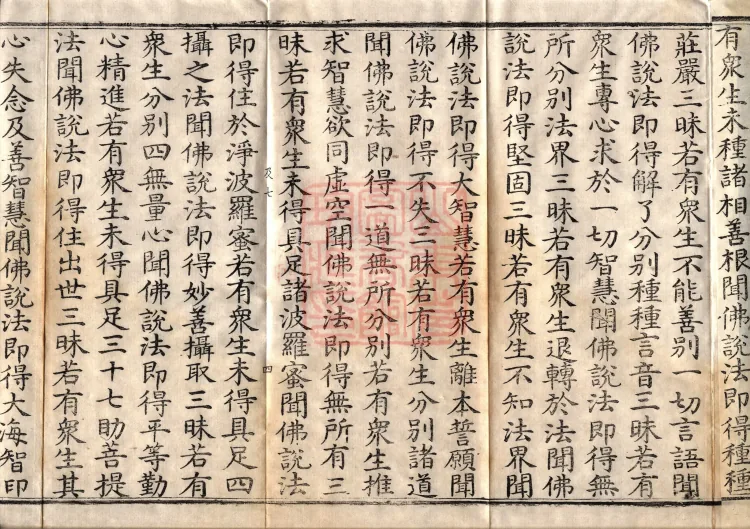 有衆生未種諸相善根聞佛說法即得種種
莊嚴三昧若有衆生不能善別一切言語聞
佛說法即得解了分别種種言音三昧若有
衆生專心求於一切智慧聞佛說法即得無
所分别法界三昧若有衆生退轉於法聞佛
說法即得堅固三昧若有衆生不知法界聞
佛說法即得大智慧若有衆生離本誓願聞
佛說法即得不失三昧若有衆生分别諸道
聞佛說法即得一道無所分别若有衆生推
求智慧欲同虛空聞佛說法即得無所有三
昧若有衆生未得具足諸波羅蜜聞佛說法
及七
四
即得住於淨波羅蜜若有衆生未得具足四
攝之法聞佛說法即得妙善攝取三昧若有
衆生分别四無量心聞佛說法即得平等勤
心精進若有衆生未得具足三十七助菩提
法聞佛說法即得住出世三昧若有衆生其
心失念及善智慧聞佛說法即得大海智印